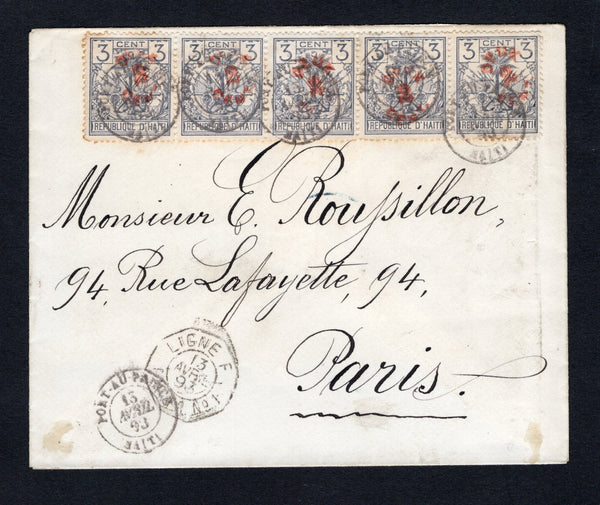 3 CENT 3 3 CENT 3 3 CENT 3 3 CENT 3 3 CENT 3
REPUBLIQUE D'HAITI REPUBLIQUE D'HAITI REPUBLIQUE D'HAITI REPUBLIQUE D'HAITI REPUBLIQUE D'HAITI
HAITI
Monsieur E. Roussillon,
94, Rue Lafayette, 94,
Paris.
LIGNE F
13
AVRIL
93
PORT-AU-PRINCE
13
AVRIL
93
HAITI